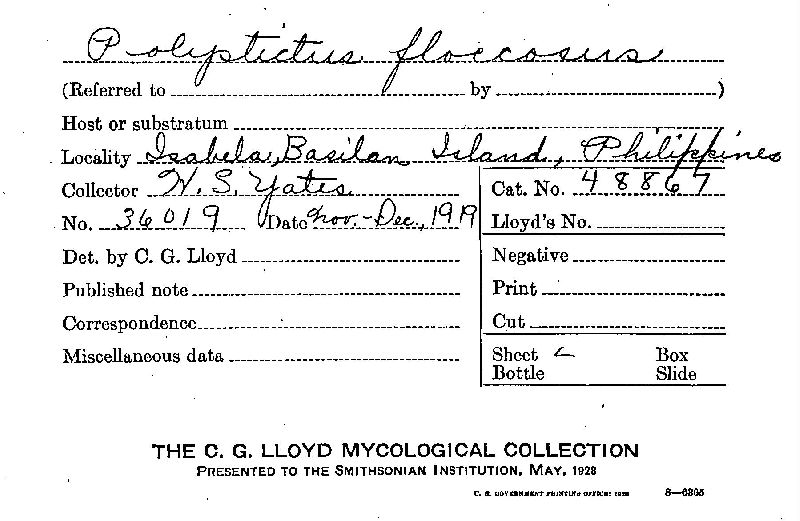 Polystictus floccosus
(Referred to by )
Host or substratum
Locality Isabela, Basilan Island, Philippines
Collector W. S. Yates
Cat. No. 48867
No. 36019 Date Nov.-Dec., 1919
Lloyd's No.
Det. by C. G. Lloyd
Negative
Published note
Print
Correspondence
Cut
Miscellaneous data
Sheet Box
Bottle Slide
THE C. G. LLOYD MYCOLOGICAL COLLECTION
PRESENTED TO THE SMITHSONIAN INSTITUTION, MAY, 1928
U. S. GOVERNMENT PRINTING OFFICE: 1928 8—6305